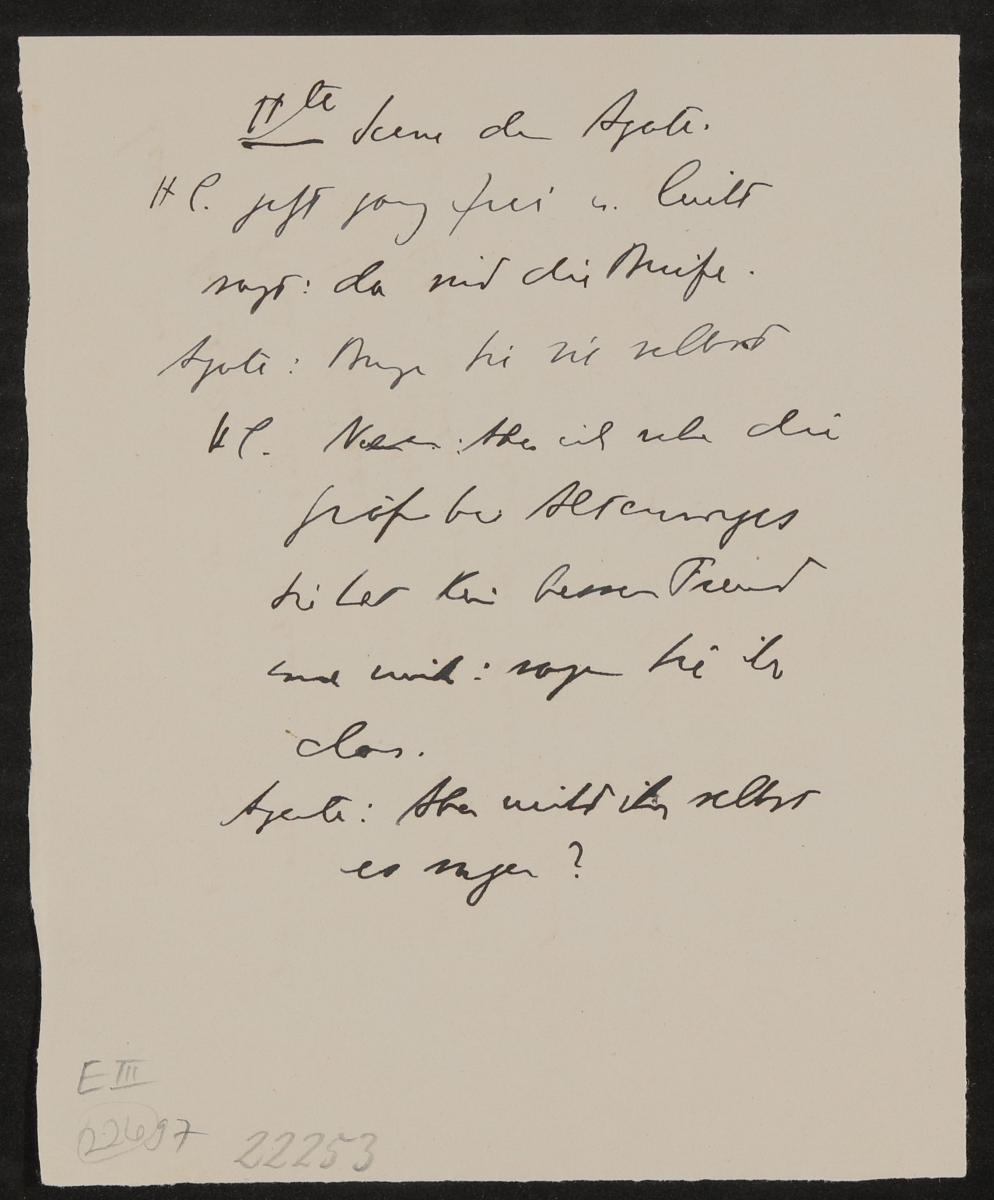 II<sup>te</sup> Scene der Agate.
HC. geht ganz frei u.
sagt: da sind die Briefe.
Agate: Bringen Sie sie selbst
HC. Nein: Aber ich sehe die
Gräfin bei Altenwyls
Sie hat kein bessern Freund
mich: sagen Sie ihr
das.
Agate: Aber ihr selbst
es sagen?
E III
22697 22253